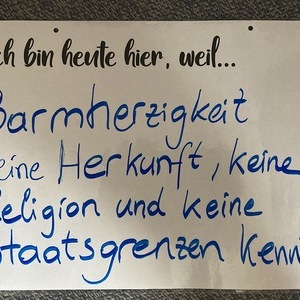 ch bin heute hier, weil...
Barmherzigkeit
eine Herkunft, keine
Religion und keine
Staatsgrenzen kenn